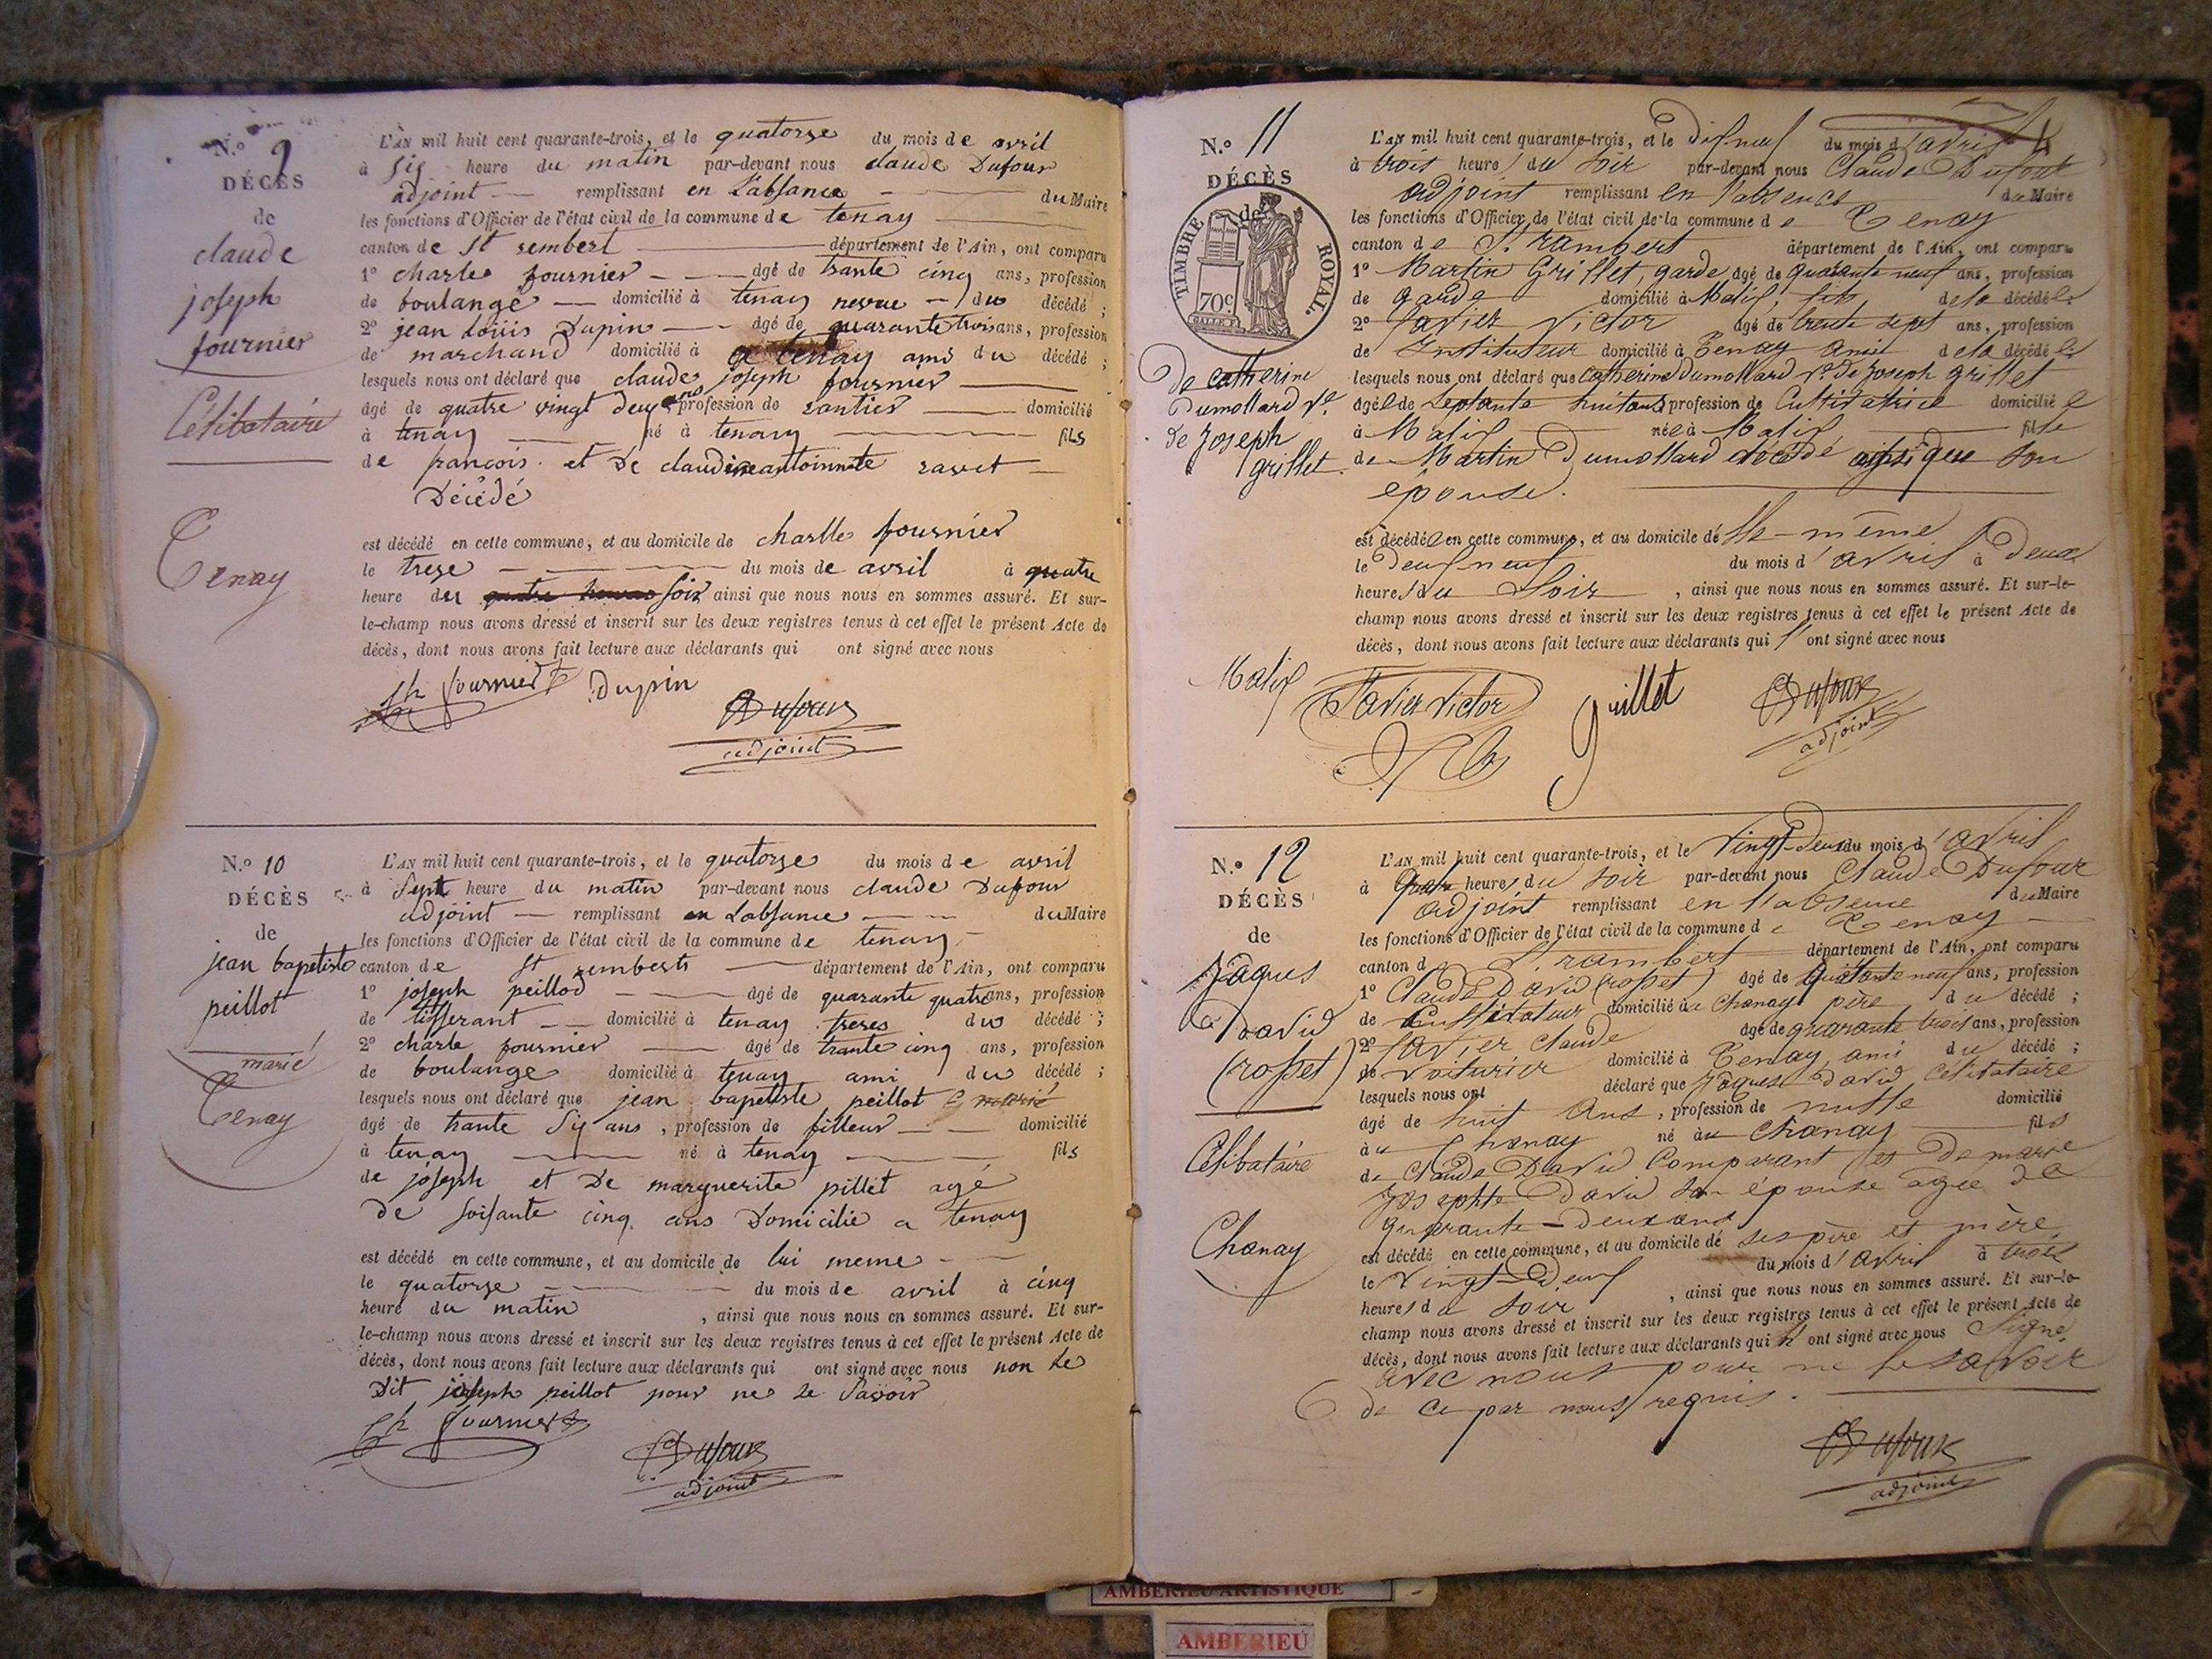 N.o 9
DÉCÈS
de
claude
joseph
fournier
Célibataire
Tenay
L'AN mil huit cent quarante-trois, et le quatorze du mois de avril
à siz heure du matin par-devant nous claude Dufour
adjoint remplissant en L'absance du Maire
les fonctions d'Officier de l'état civil de la commune de tenay
canton de St rembert département de l'Ain, ont comparu
1o charles fournier âgé de trante cinq ans, profession
de boulange domicilié à tenay neveu du décédé ;
2o jean Louis Dupin âgé de quarante trois ans, profession
de marchand domicilié à tenay ami du décédé ;
lesquels nous ont déclaré que claude joseph fournier
âgé de quatre vingt deuz ans profession de rantier domicilié
à tenay né à tenay fils
de francois et De claudine antoinnete ravet
Décédé
est décédé en cette commune, et au domicile de charlle fournier
le treze du mois de avril à quatre
heure du quatre heures soir ainsi que nous nous en sommes assuré. Et sur-
le-champ nous avons dressé et inscrit sur les deux registres tenus à cet effet le présent Acte de
décès, dont nous avons fait lecture aux déclarants qui ont signé avec nous
Ch fournier Dupin
Dufour
adjoint
N.o 10
DÉCÈS
de
jean bapetiste
peillot
marié
Tenay
L'AN mil huit cent quarante-trois, et le quatorze du mois de avril
à Sept heure du matin par-devant nous claude Dufour
adjoint remplissant en Labsance du Maire
les fonctions d'Officier de l'état civil de la commune de tenay
canton de St rembert département de l'Ain, ont comparu
1o joseph peillod âgé de quarante quatre ans, profession
de tisserant domicilié à tenay freres du décédé ;
2o charle fournier âgé de trante cinq ans, profession
de boulange domicilié à tenay ami du décédé ;
lesquels nous ont déclaré que jean bapetiste peillot marié
âgé de trante Siz ans, profession de filleur domicilié
à tenay né à tenay fils
de joseph et De marguerite pillet agé
De soisante cinq ans Domicilié a tenay
est décédé en cette commune, et au domicile de lui meme
le quatorze du mois de avril à cinq
heure du matin, ainsi que nous nous en sommes assuré. Et sur-
le-champ nous avons dressé et inscrit sur les deux registres tenus à cet effet le présent Acte de
décès, dont nous avons fait lecture aux déclarants qui ont signé avec nous non le
Dit joseph peillot pour ne le Savoir
Ch fournier
Dufour
adjoint
N.o 11
DÉCÈS
de
TIMBRE ROYAL.
70c
De catherine
Dumollard Ve
de Joseph
grillet.
Malix
L'AN mil huit cent quarante-trois, et le Dix neuf du mois d'avril
à trois heures du soir par-devant nous Claude Dufour
adjoint remplissant en l'absence du Maire
les fonctions d'Officier de l'état civil de la commune de Tenay
canton de St rambert département de l'Ain, ont comparu
1o Martin Grillet, garde âgé de quarante neuf ans, profession
de garde domicilié à Malix, fils de la décédée
2o Savier Victor âgé de trente sept ans, profession
de Instituteur domicilié à Tenay ami de la décédée
lesquels nous ont déclaré que catherine Dumollard Ve de Joseph grillet
âgée de Septante huit ans profession de Cultivatrice domiciliée
à Malix née à Malix fille
de Martin Dumollard décédé ainsi que son
épouse.
est décédée en cette commune, et au domicile de Elle-même
le Deuf neuf du mois d'avril à Deux
heures du Soir, ainsi que nous nous en sommes assuré. Et sur-le-
champ nous avons dressé et inscrit sur les deux registres tenus à cet effet le présent Acte de
décès, dont nous avons fait lecture aux déclarants qui l'ont signé avec nous
Savier Victor grillet Dufour
adjoint
N.o 12
DÉCÈS
de
Jâques
David
(rosset)
Célibataire
Chanay
L'AN mil huit cent quarante-trois, et le Vingt-Deux du mois d'avril
à quatre heures du soir par-devant nous Claude Dufour
adjoint remplissant en l'absence du Maire
les fonctions d'Officier de l'état civil de la commune de Tenay
canton de St rambert département de l'Ain, ont comparu
1o Claude David (rosset) âgé de quarante neuf ans, profession
de Cultivateur domicilié au Chanay père du décédé ;
2o Savier Claude âgé de quarante trois ans, profession
de Voiturier domicilié à Tenay, ami du décédé ;
lesquels nous ont déclaré que Jâques David Célibataire
âgé de huit Ans, profession de nulle domicilié
au Chanay né au Chanay fils
de Claude David Comparant et De marie
Josephte David son épouse agée de
quarante-Deux ans
est décédé en cette commune, et au domicile de ses père et mère
le Vingt-Deux du mois d'avril à trois
heures du soir, ainsi que nous nous en sommes assuré. Et sur-le-
champ nous avons dressé et inscrit sur les deux registres tenus à cet effet le présent Acte de
décès, dont nous avons fait lecture aux déclarants qui n'ont signé avec nous Signé
avec nous pour ne le savoir
de Ce par nous requis.
Dufour
adjoint
AMBERIEU ARTISTIQUE
AMBERIEU